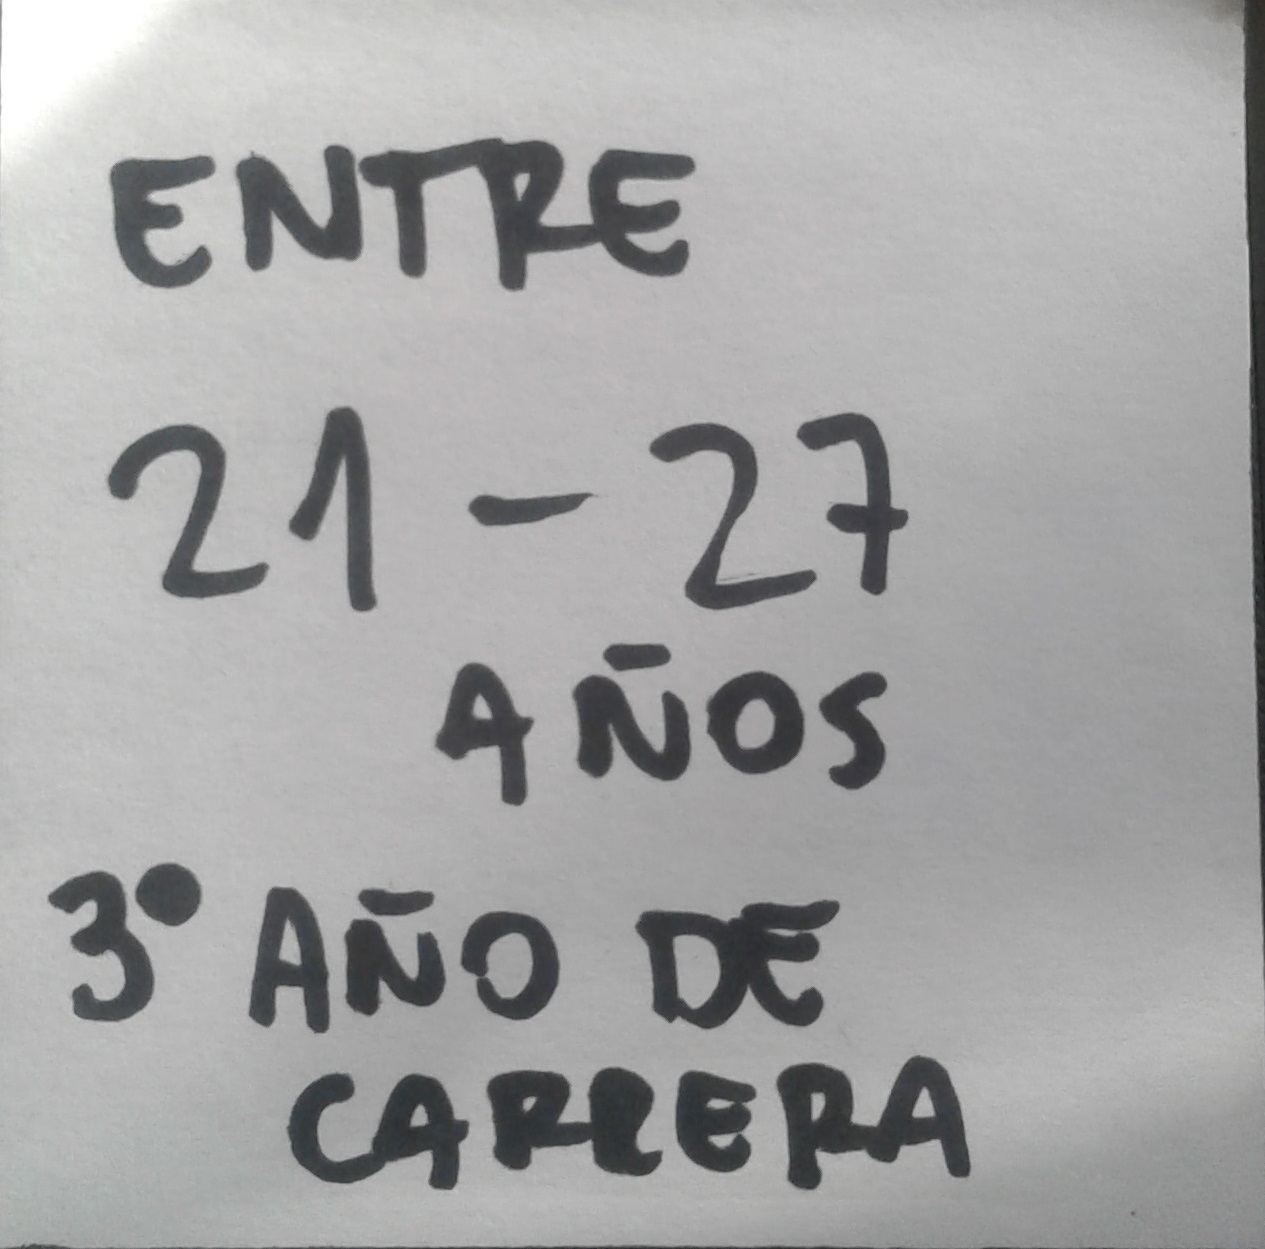 ENTRE
21 - 27
AÑOS
3º AÑO DE
CARRERA